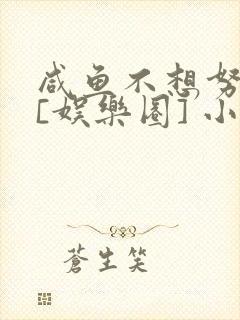 咸鱼不想努
[娱樂圈] 小
蒼生笑